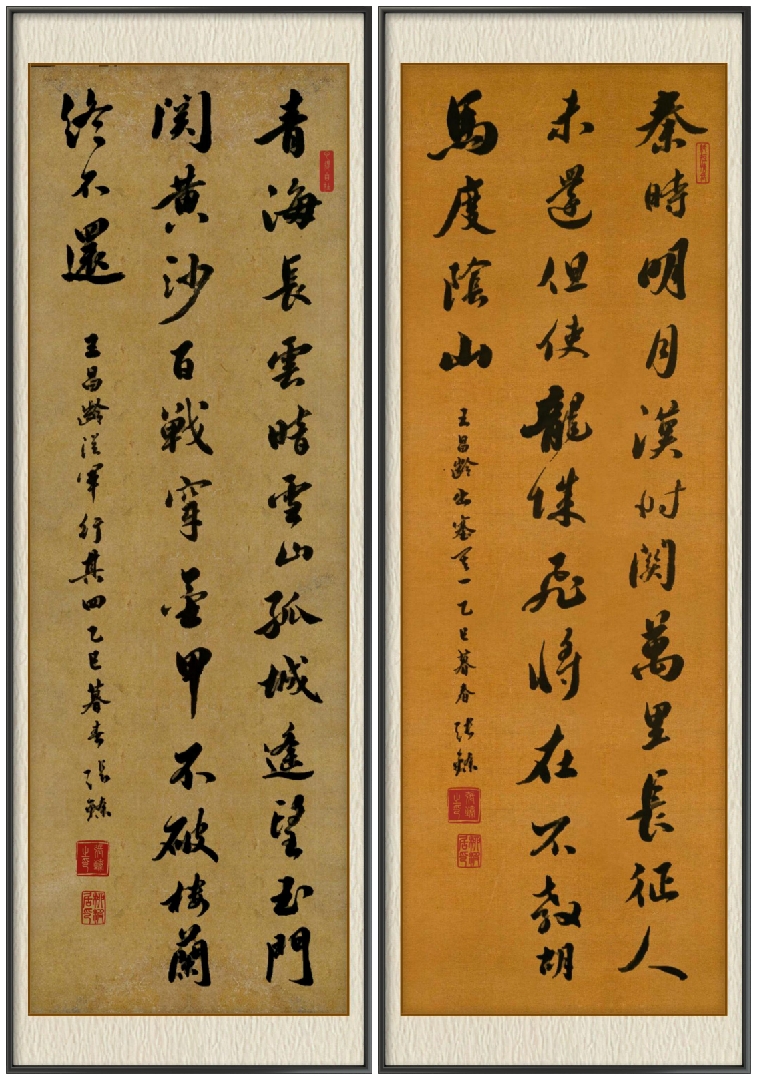 秦時明月漢時關萬里長征人
未還但使龍城飛將在不教胡
馬度陰山
王昌齡出塞其一乙巳暮春張
青海長雲暗雪山孤城遙望玉門
關黃沙百戰穿金甲不破樓蘭
終不還
王昌齡從軍行其四乙巳暮春張